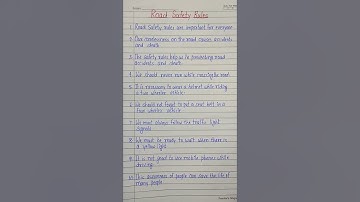 Road Safety Rules
1. Road Safety rules are important for everyone
2. Our carelessness on the road causes accidents
and death
3. The safety rules help us to preventing road
accidents and death
4. We should never run while crossing the road
5. It is necessary to wear a helmet while riding
a two wheeler vehicle
6. We should not forget to put a seat belt in a
four wheeler vehicle
7. We must always follow the traffic light
signals
8. We must be ready to wait when there is
a yellow light
9. It is not good to use mobile phones while
driving
10. The awareness of people can save the life of
many people